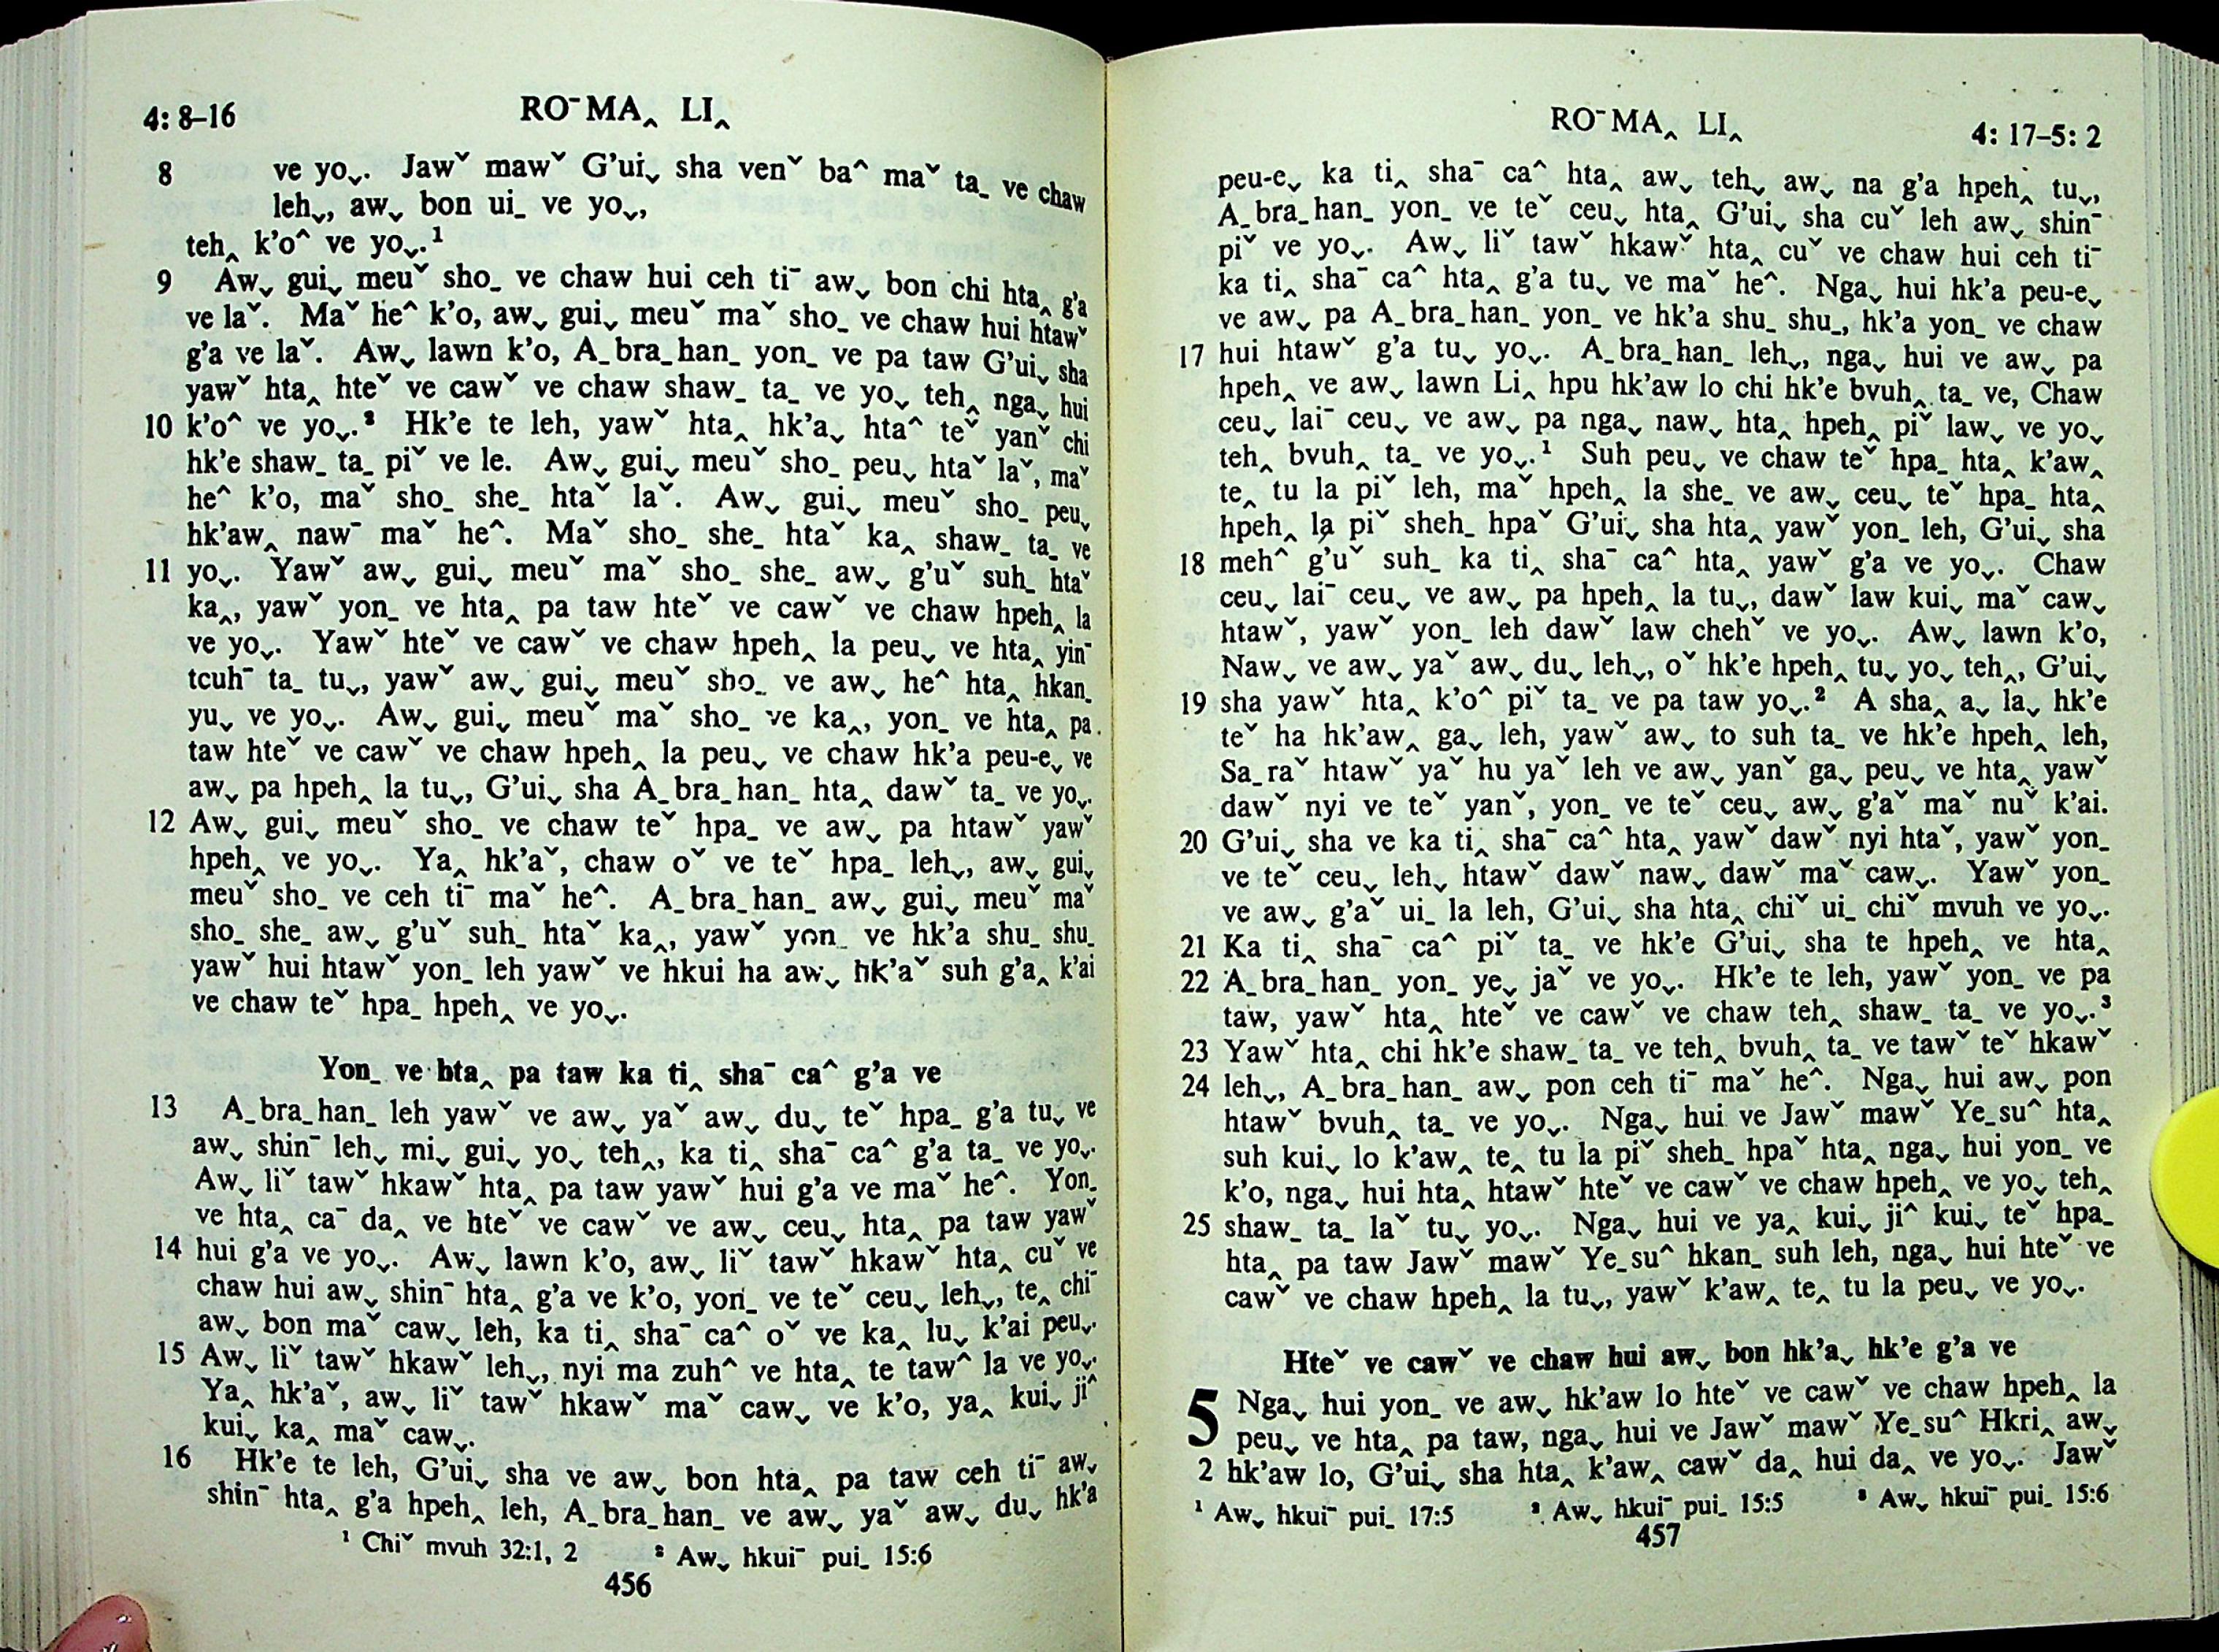 4: 8–16
RO¯MA˰ LI˰
8 ve yo˯. Jawˇ mawˇ G’ui˯ sha venˇ ba^ maˇ ta_ ve chaw
leh˯, aw˯ bon ui_ ve yo˯,
teh˰ k’o^ ve yo˯.¹
9 Aw˯ gui˯ meuˇ sho_ ve chaw hui ceh ti¯ aw˯ bon chi hta˰ g’a
ve laˇ. Maˇ he^ k’o, aw˯ gui˯ meuˇ maˇ sho_ ve chaw hui htawˇ
g’a ve laˇ. Aw˯ lawn k’o, A_bra_han_ yon_ ve pa taw G’ui˯ sha
yawˇ hta˰ hteˇ ve cawˇ ve chaw shaw_ ta_ ve yo˯ teh˰ nga˯ hui
10 k’o^ ve yo˯.² Hk’e te leh, yawˇ hta˰ hk’a˯ hta^ teˇ yanˇ chi
hk’e shaw_ ta_ piˇ ve le. Aw˯ gui˯ meuˇ sho_ peu˯ htaˇ laˇ, maˇ
he^ k’o, maˇ sho_ she_ htaˇ laˇ. Aw˯ gui˯ meuˇ sho_ peu˯
hk’aw˰ naw¯ maˇ he^. Maˇ sho_ she_ htaˇ ka˰ shaw_ ta_ ve
11 yo˯. Yawˇ aw˯ gui˯ meuˇ maˇ sho_ she_ aw˯ g’uˇ suh_ htaˇ
ka˰, yawˇ yon_ ve hta˰ pa taw hteˇ ve cawˇ ve chaw hpeh˰ la
ve yo˯. Yawˇ hteˇ ve cawˇ ve chaw hpeh˰ la peu˯ ve hta˰ yin¯
tcuh¯ ta_ tu˯, yawˇ aw˯ gui˯ meuˇ sho_ ve aw˯ he^ hta˰ hkan_
yu˯ ve yo˯. Aw˯ gui˯ meuˇ maˇ sho_ ve ka˰, yon_ ve hta˰ pa
taw hteˇ ve cawˇ ve chaw hpeh˰ la peu˯ ve chaw hk’a peu-e˯ ve
aw˯ pa hpeh˰ la tu˯, G’ui˯ sha A_bra_han_ hta˰ dawˇ ta_ ve yo˯.
12 Aw˯ gui˯ meuˇ sho_ ve chaw teˇ hpa_ ve aw˯ pa htawˇ yawˇ
hpeh˰ ve yo˯. Ya˰ hk’aˇ, chaw oˇ ve teˇ hpa_ leh˯, aw˯ gui˯
meuˇ sho_ ve ceh ti¯ maˇ he^. A_bra_han_ aw˯ gui˯ meuˇ maˇ
sho_ she_ aw˯ g’uˇ suh_ htaˇ ka˰, yawˇ yon_ ve hk’a shu_ shu_
yawˇ hui htawˇ yon_ leh yawˇ ve hkui ha aw˯ hk’aˇ suh g’a˰ k’ai
ve chaw teˇ hpa_ hpeh˰ ve yo˯.
Yon_ ve hta˰ pa taw ka ti˰ sha¯ ca^ g’a ve
13 A_bra_han_ leh yawˇ ve aw˯ yaˇ aw˯ du˯ teˇ hpa_ g’a tu˯ ve
aw˯ shin¯ leh˯ mi˯ gui˯ yo˯ teh˰, ka ti˰ sha¯ ca^ g’a ta_ ve yo˯.
Aw˯ liˇ tawˇ hkawˇ hta˰ pa taw yawˇ hui g’a ve maˇ he^. Yon_
ve hta˰ ca¯ da˰ ve hteˇ ve cawˇ ve aw˯ ceu˯ hta˰ pa taw yawˇ
14 hui g’a ve yo˯. Aw˯ lawn k’o, aw˯ liˇ tawˇ hkawˇ hta˰ cuˇ ve
chaw hui aw˯ shin¯ hta˰ g’a ve k’o, yon_ ve teˇ ceu˯ leh˯, te˰ chi¯
aw˯ bon maˇ caw˯ leh, ka ti˰ sha¯ ca^ oˇ ve ka˰ lu˯ k’ai peu˯.
15 Aw˯ liˇ tawˇ hkawˇ leh˯, nyi ma zuh^ ve hta˰ te taw^ la ve yo˯.
Ya˰ hk’aˇ, aw˯ liˇ tawˇ hkawˇ maˇ caw˯ ve k’o, ya˰ kui˯ ji^
kui˯ ka˰ maˇ caw˯.
16 Hk’e te leh, G’ui˯ sha ve aw˯ bon hta˰ pa taw ceh ti¯ aw˯
shin¯ hta˰ g’a hpeh˰ leh, A_bra_han_ ve aw˯ yaˇ aw˯ du˯ hk’a
¹ Chiˇ mvuh 32:1, 2 ² Aw˯ hkui¯ pui_ 15:6
456
RO¯MA˰ LI˰
4: 17–5: 2
peu-e˯ ka ti˰ sha¯ ca^ hta˰ aw˯ teh˯ aw˯ na g’a hpeh˰ tu˯,
A_bra_han_ yon_ ve teˇ ceu˯ hta˰ G’ui˯ sha cuˇ leh aw˯ shin¯
piˇ ve yo˯. Aw˯ liˇ tawˇ hkawˇ hta˰ cuˇ ve chaw hui ceh ti¯
ka ti˰ sha¯ ca^ hta˰ g’a tu˯ ve maˇ he^. Nga˯ hui hk’a peu-e˯
ve aw˯ pa A_bra_han_ yon_ ve hk’a shu_ shu_, hk’a yon_ ve chaw
17 hui htawˇ g’a tu˯ yo˯. A_bra_han_ leh˯, nga˯ hui ve aw˯ pa
hpeh˰ ve aw˯ lawn Li˰ hpu hk’aw lo chi hk’e bvuh˰ ta_ ve, Chaw
ceu˯ lai¯ ceu˯ ve aw˯ pa nga˯ naw˯ hta˰ hpeh˰ piˇ law˯ ve yo˯
teh˰ bvuh˰ ta_ ve yo˯.¹ Suh peu˯ ve chaw teˇ hpa_ hta˰ k’aw˰
te˰ tu la piˇ leh, maˇ hpeh˰ la she_ ve aw˯ ceu˯ teˇ hpa_ hta˰
hpeh˰ la piˇ sheh_ hpaˇ G’ui˯ sha hta˰ yawˇ yon_ leh, G’ui˯ sha
18 meh^ g’uˇ suh_ ka ti˰ sha¯ ca^ hta˰ yawˇ g’a ve yo˯. Chaw
ceu˯ lai¯ ceu˯ ve aw˯ pa hpeh˰ la tu˯, dawˇ law kui˯ maˇ caw˯
htawˇ, yawˇ yon_ leh dawˇ law chehˇ ve yo˯. Aw˯ lawn k’o,
Naw˯ ve aw˯ yaˇ aw˯ du˯ leh˯, oˇ hk’e hpeh˰ tu˯ yo˯ teh˰, G’ui˯
19 sha yawˇ hta˰ k’o^ piˇ ta_ ve pa taw yo˯.² A sha˰ a˯ la˯ hk’e
teˇ ha hk’aw˰ ga˯ leh, yawˇ aw˯ to suh ta_ ve hk’e hpeh˰ leh,
Sa_raˇ htawˇ yaˇ hu yaˇ leh ve aw˯ yanˇ ga˯ peu˯ ve hta˰ yawˇ
dawˇ nyi ve teˇ yanˇ, yon_ ve teˇ ceu˯ aw˯ g’aˇ maˇ nuˇ k’ai.
20 G’ui˯ sha ve ka ti˰ sha¯ ca^ hta˰ yawˇ dawˇ nyi htaˇ, yawˇ yon_
ve teˇ ceu˯ leh˯ htawˇ dawˇ naw˯ dawˇ maˇ caw˯. Yawˇ yon_
ve aw˯ g’aˇ ui_ la leh, G’ui˯ sha hta˰ chiˇ ui_ chiˇ mvuh ve yo˯.
21 Ka ti˰ sha¯ ca^ piˇ ta_ ve hk’e G’ui˯ sha te hpeh˰ ve hta˰
22 A_bra_han_ yon_ ye˯ jaˇ ve yo˯. Hk’e te leh, yawˇ yon_ ve pa
taw, yawˇ hta˰ hteˇ ve cawˇ ve chaw teh˰ shaw_ ta_ ve yo˯.³
23 Yawˇ hta˰ chi hk’e shaw_ ta_ ve teh˰ bvuh˰ ta_ ve tawˇ teˇ hkawˇ
24 leh˯, A_bra_han_ aw˯ pon ceh ti¯ maˇ he^. Nga˯ hui aw˯ pon
htawˇ bvuh˰ ta_ ve yo˯. Nga˯ hui ve Jawˇ mawˇ Ye_su^ hta˰
suh kui˯ lo k’aw˰ te˰ tu la piˇ sheh_ hpaˇ hta˰ nga˯ hui yon_ ve
k’o, nga˯ hui hta˰ htawˇ hteˇ ve cawˇ ve chaw hpeh˰ ve yo˯ teh˰
25 shaw_ ta_ laˇ tu˯ yo˯. Nga˯ hui ve ya˰ kui˯ ji^ kui˯ teˇ hpa_
hta˰ pa taw Jawˇ mawˇ Ye_su^ hkan_ suh leh, nga˯ hui hteˇ ve
cawˇ ve chaw hpeh˰ la tu˯, yawˇ k’aw˰ te˰ tu la peu˯ ve yo˯.
Hteˇ ve cawˇ ve chaw hui aw˯ bon hk’a˯ hk’e g’a ve
5 Nga˯ hui yon_ ve aw˯ hk’aw lo hteˇ ve cawˇ ve chaw hpeh˰ la
peu˯ ve hta˰ pa taw, nga˯ hui ve Jawˇ mawˇ Ye_su^ Hkri˰ aw˯
2 hk’aw lo, G’ui˯ sha hta˰ k’aw˰ cawˇ da˰ hui da˰ ve yo˯. Jawˇ
¹ Aw˯ hkui¯ pui_ 17:5 ² Aw˯ hkui¯ pui_ 15:5 ³ Aw˯ hkui¯ pui_ 15:6
457